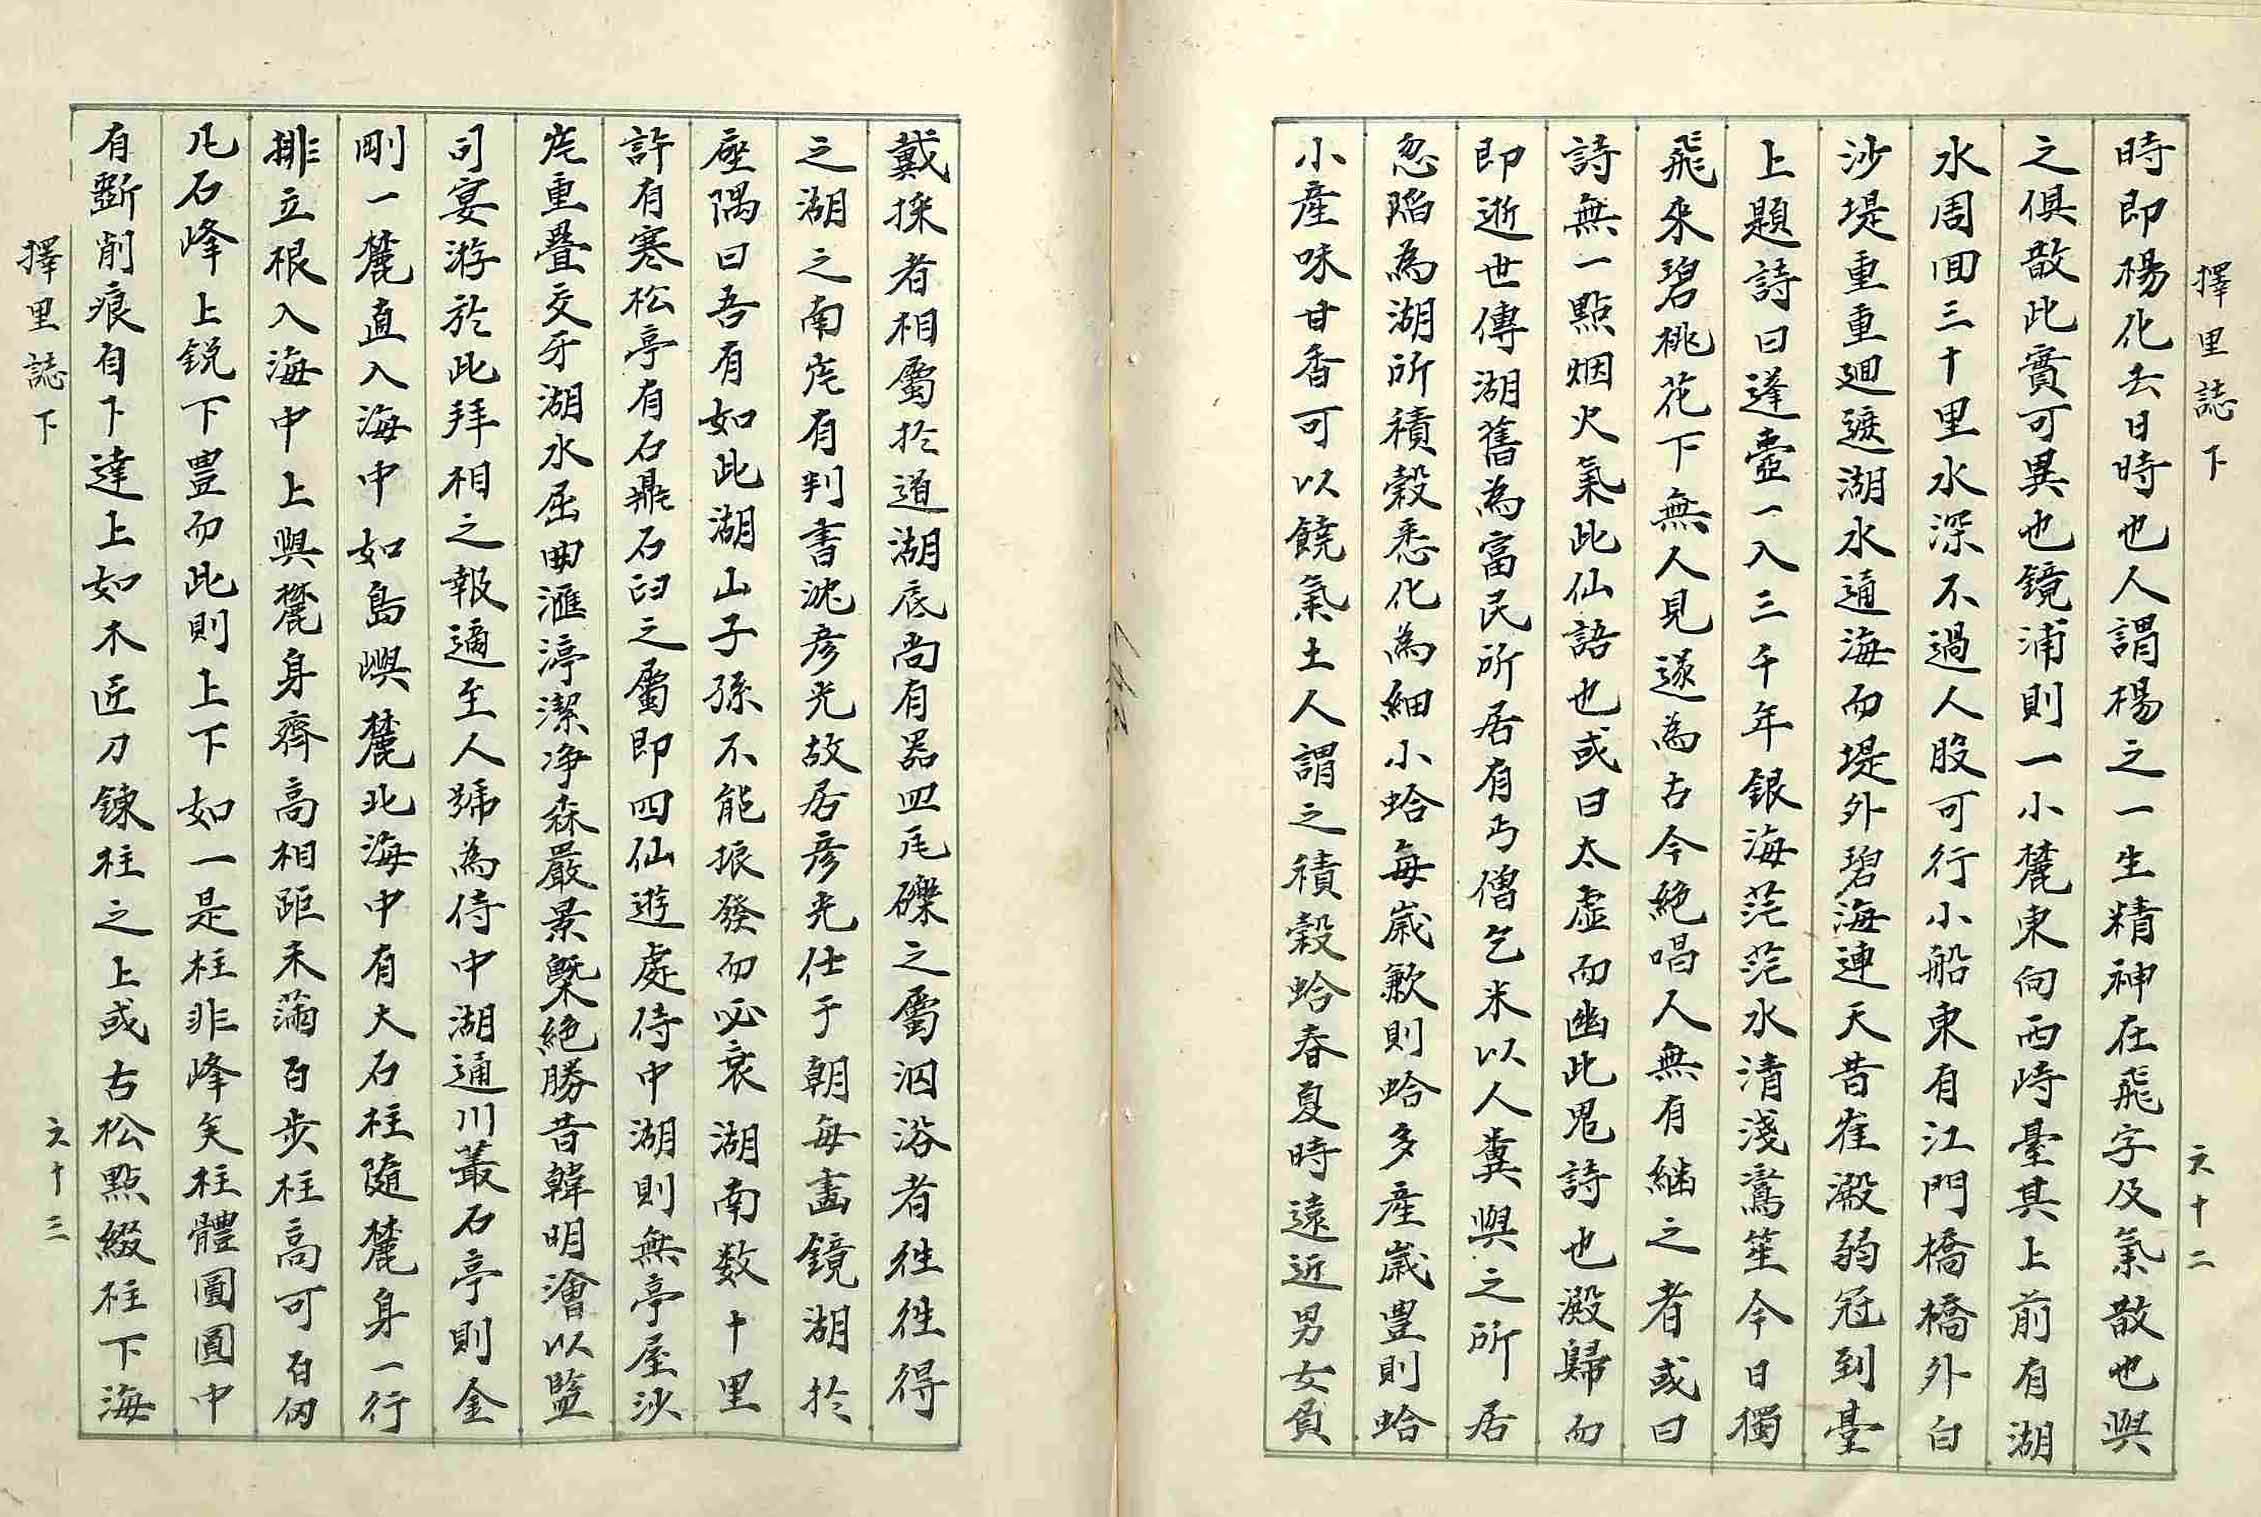 擇里誌下
六十二
時即楊化去日時也人謂楊之一生精神在飛字及氣散也與
之俱散此實可異也鏡浦則一小麓東向西峙臺其上前有湖
水周回三十里水深不過人股可行小船東有江門橋橋外白
沙堤重重廻遮湖水通海而堤外碧海連天昔崔澱弱冠到臺
上題詩曰蓬壺一入三千年銀海茫茫水清淺鸞笙今日獨
飛來碧桃花下無人見遂為古今絶唱人無有繼之者或曰
詩無一點烟火氣此仙語也或曰太虛而幽此鬼詩也澱歸而
即逝世傳湖舊為富民所居有丐僧乞米以人糞與之所居
忽陷為湖所積穀悉化為細小蛤每歲歉則蛤多產歲豊則蛤
小產味甘香可以饒氣土人謂之積穀蛤春夏時遠近男女負
戴採者相屬於道湖底尚有器皿瓦礫之屬泅浴者徃徃得
之湖之南岸有判書沈彦光故居彦光仕于朝每畵鏡湖於
座隅曰吾有如此湖山子孫不能振發而必衰湖南数十里
許有寒松亭有石鼎石臼之屬即四仙遊處侍中湖則無亭屋沙
岸重疊交牙湖水屈曲滙渟潔净森嚴景槩絶勝昔韓明澮以監
司宴游於此拜相之報適至人號為侍中湖通川叢石亭則金
剛一麓直入海中如島嶼麓北海中有大石柱隨麓身一行
排立根入海中上與麓身齊高相距未滿百步柱高可百仞
凡石峰上銳下豊而此則上下如一是柱非峰矣柱體圓圓中
有斵削痕自下達上如木匠刀鍊柱之上或古松點綴柱下海
擇里誌下
六十三